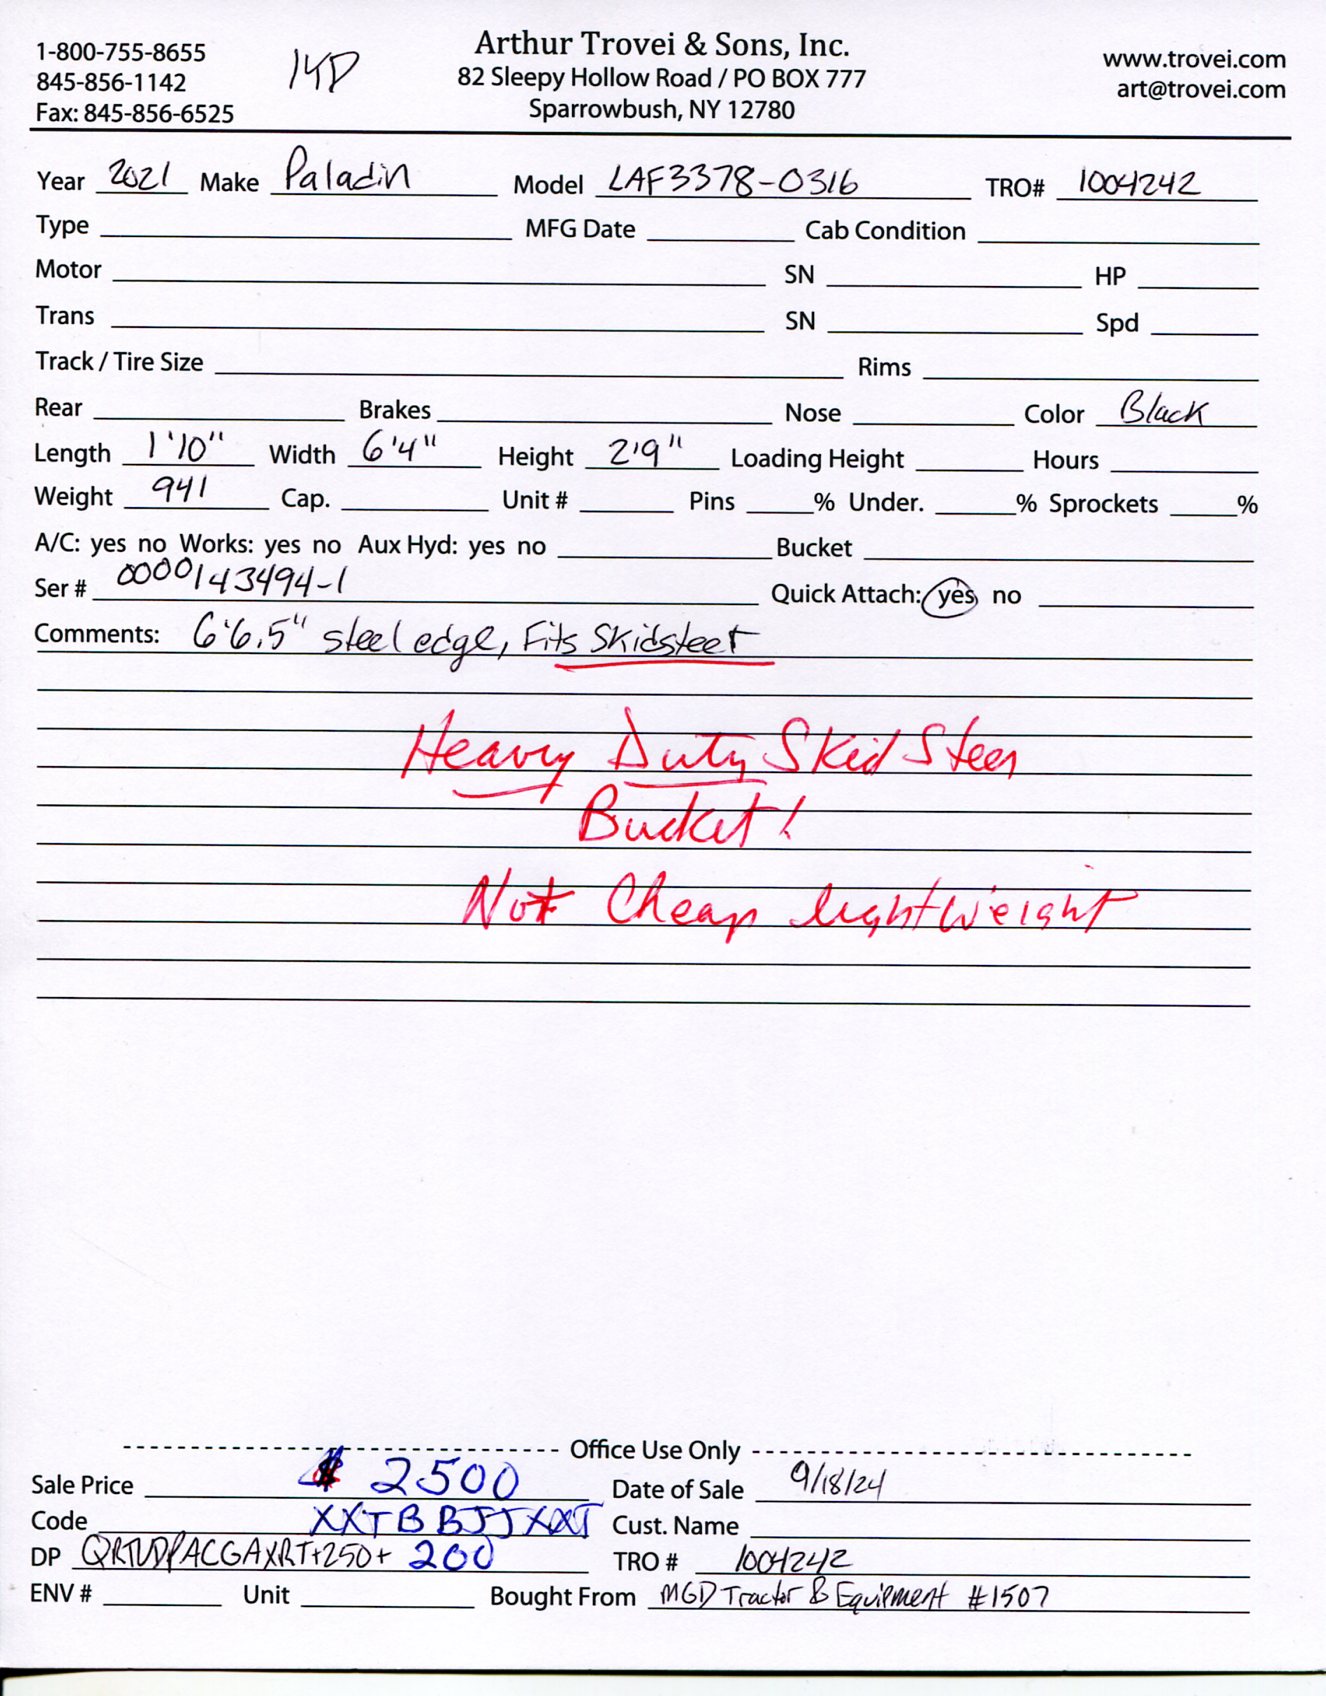 Arthur Trovei & Sons, Inc.
82 Sleepy Hollow Road / PO BOX 777
Sparrowbush, NY 12780
1-800-755-8655
845-856-1142
Fax: 845-856-6525
www.trovei.com
art@trovei.com
Year 2021 Make Paladin Model LAF3378-0316 TRO# 1004242
Type MFG Date Cab Condition
Motor SN HP
Trans SN Spd
Track / Tire Size Rims
Rear Brakes Nose Color Black
Length 1'10" Width 6'4" Height 2'9" Loading Height Hours
Weight 941 Cap. Unit # Pins % Under. % Sprockets %
A/C: yes no Works: yes no Aux Hyd: yes no Bucket
Ser # 0000143494-1 Quick Attach: yes no
Comments: 6'6.5" steel edge, Fits Skidsteer
Heavy Duty Skid Steer
Bucket!
Not Cheap lightweight
Office Use Only
Sale Price $ 2500 Date of Sale 9/18/24
Code XXTBBJJXXT Cust. Name
DP +250+ 200 TRO # 1004242
ENV # Unit Bought From MGD Tractor & Equipment #1507